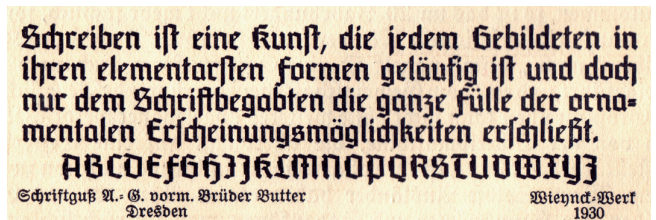 Schreiben ist eine Kunst, die jedem Gebildeten in
ihren elementarsten Formen geläufig ist und doch
nur dem Schriftbegabten die ganze Fülle der orna=
mentalen Erscheinungsmöglichkeiten erschließt.
ABCDEFGHIJKLMNOPQRSTUVWXYZ
Schriftguß A.=G. vorm. Brüder Butter
Dresden
Wieynck=Werk
1930